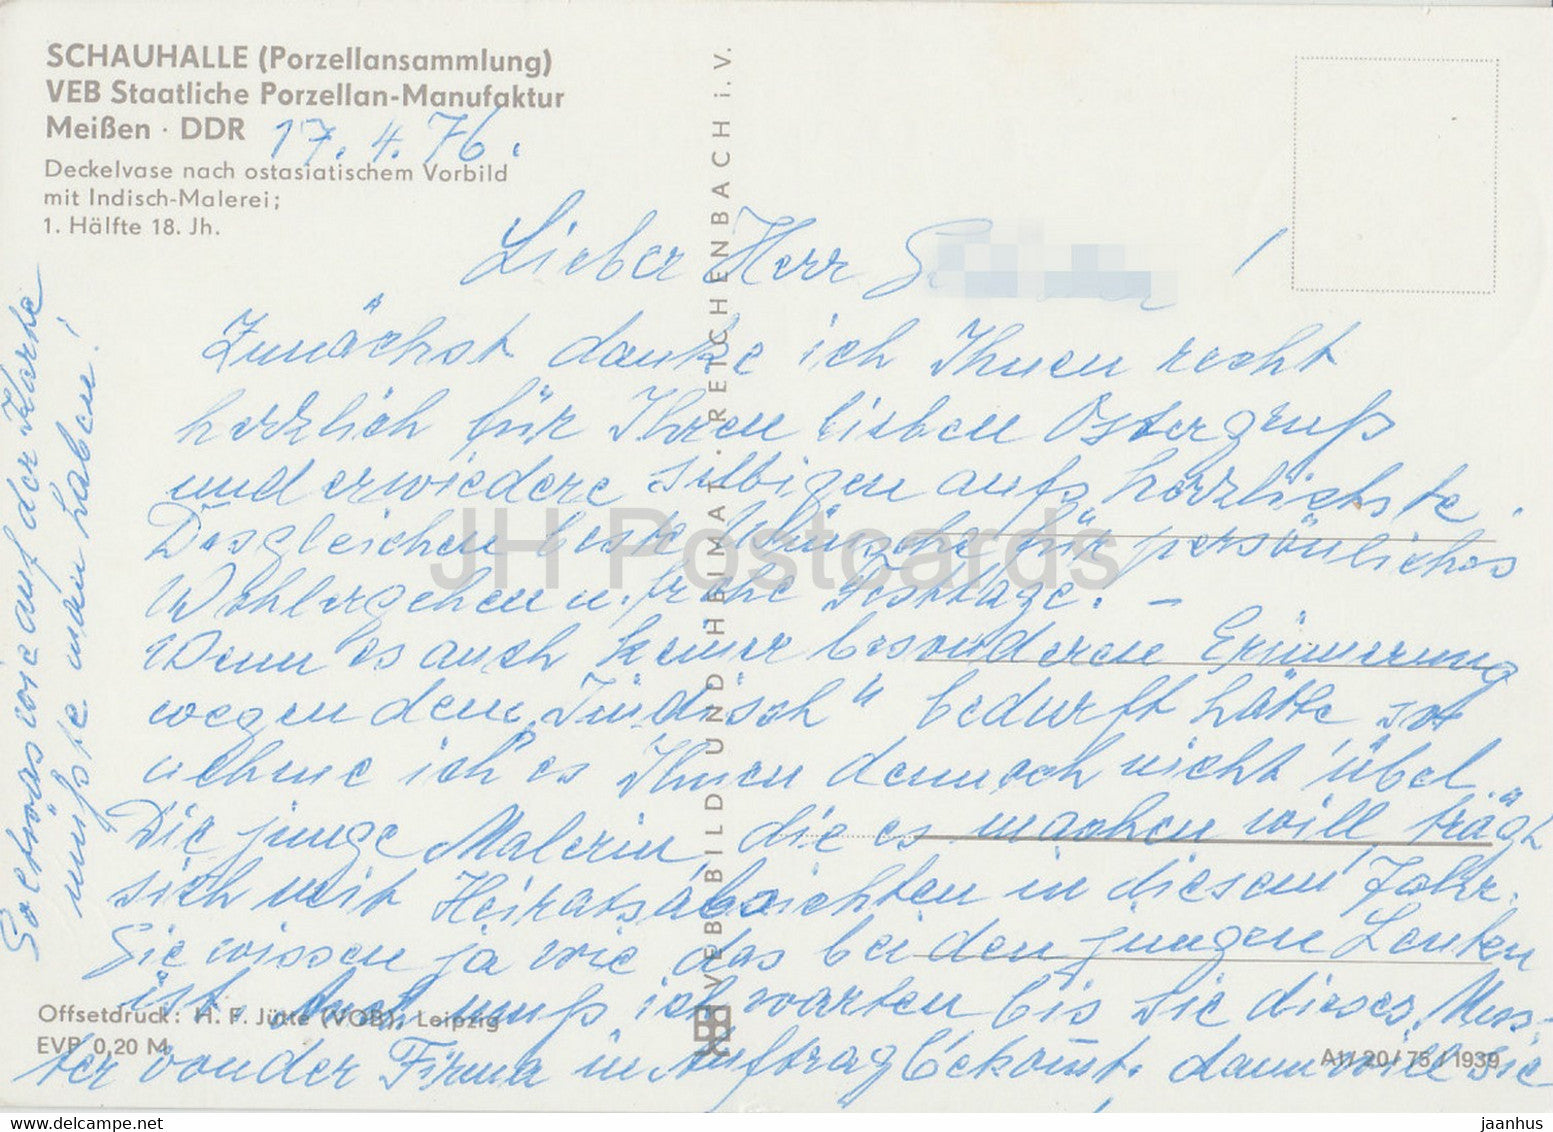 SCHAUHALLE (Porzellansammlung)
VEB Staatliche Porzellan-Manufaktur
Meißen · DDR
17. 4. 76.
Deckelvase nach ostasiatischem Vorbild
mit Indisch-Malerei;
1. Hälfte 18. Jh.
Lieber Herr !
Zunächst danke ich Ihnen recht
herzlich für Ihren lieben Ostergruß
und erwiedere selbigen aufs herzlichste.
Desgleichen beste Wünsche für persönliches
Wohlergehen u. frohe Festtage. –
Wenn es auch keiner besonderen Erinnerung
wegen dem „Indisch" bedurft hätte, so
nehme ich es Ihnen dennoch nicht übel.
Die junge Malerin, die es machen will, trägt
sich mit Heiratsabsichten in diesem Jahr.
Sie wissen ja wie das bei den jungen Leuten
ist. Auch muß ich warten bis sie dieses Mus-
ter von der Firma in Auftrag bekommt. dann will sie
So etwas wie auf der Karte
müßte man haben!
VEB BILD UND HEIMAT · REICHENBACH i. V.
Offsetdruck: H. F. Jütte (VOB), Leipzig
EVP 0,20 M
A1/ 20 / 75 / 1939
JH Postcards
www.delcampe.net
jaanhus